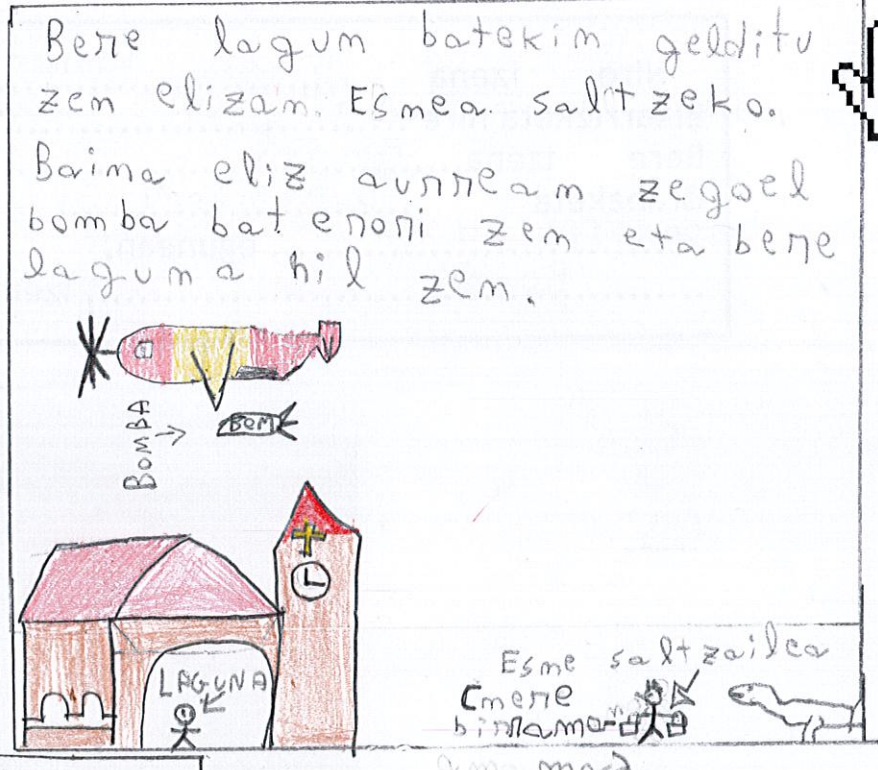 Bere lagun batekin gelditu
zen elizan. Esnea saltzeko.
Baina eliz aurrean zegoel
bomba bat erori zen eta bere
laguna hil zen.
BOMBA
BOM
LAGUNA
Esne saltzailea
(nere
birramama